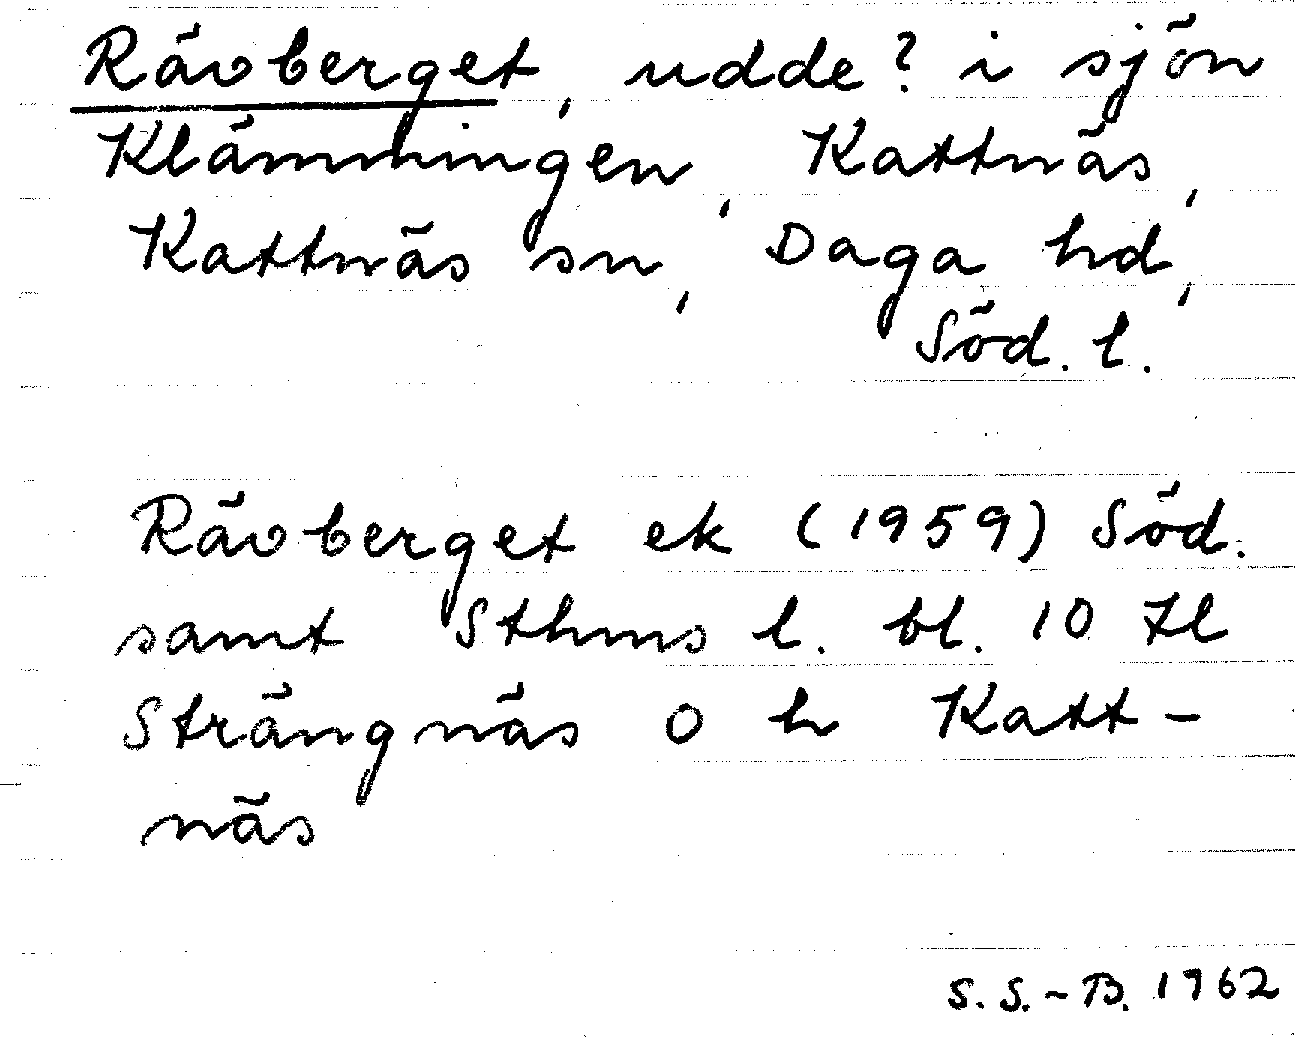 Rävberget, udde? i sjön
Klämmingen, Kattnäs,
Kattnäs sn, Daga hd,
Söd. l.
Rävberget ek (1959) Söd.
samt Sthms l. bl. 10 tl
Strängnäs o h Katt-
näs
S. S.-B. 1962